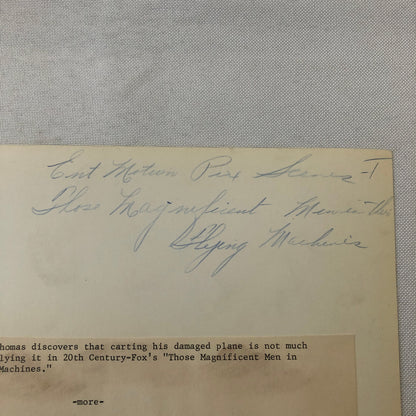 Ent Motion Pix Scenes - T
Those Magnificent Men in Their
Flying Machines
homas discovers that carting his damaged plane is not much
lying it in 20th Century-Fox's "Those Magnificent Men in
Machines."
-more-